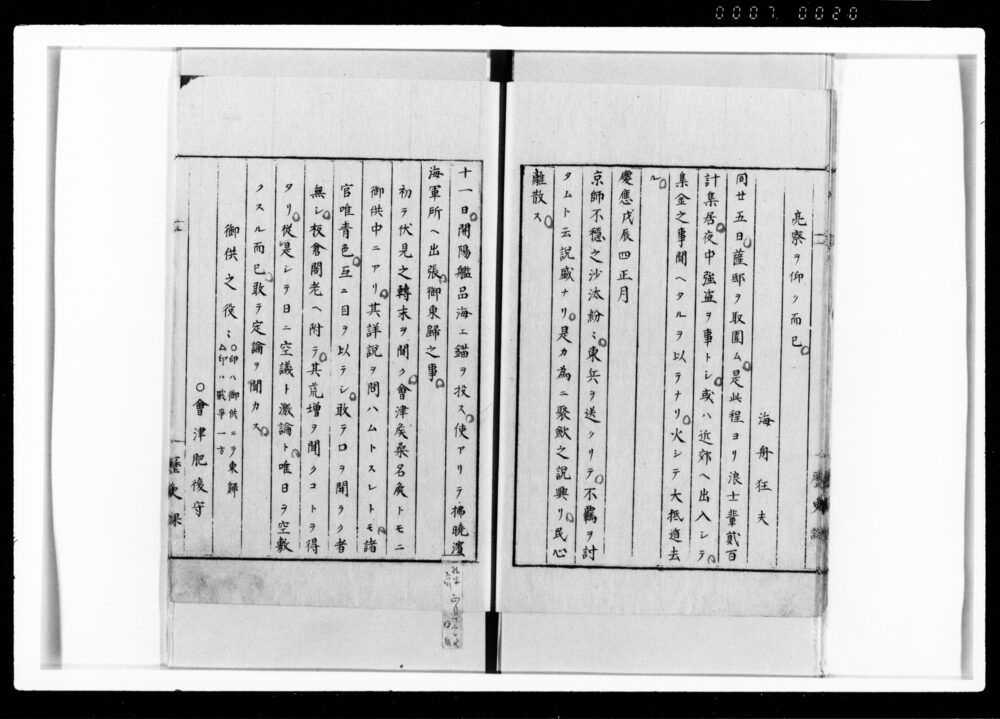 0007 0020
亮察ヲ仰ク而已
海舟狂夫
同廿五日薩邸ヲ取圍ム是此程ヨリ浪士輩貳百
計集居夜中強盗ヲ事トシ或ハ近郊ヘ出入シテ
集金之事聞ヘタルヲ以テナリ火シテ大抵遁去
ル
慶應戊辰四正月
京師不穏之沙汰紛ミ東兵ヲ送クリテ不羈ヲ討
タムト云説盛ナリ是カ為ニ聚歛之説興リ民心
離散ス
十一日開陽艦品海ニ錨ヲ投ス使アリテ拂曉濱
海軍所ヘ出張御東歸之事
初ヲ伏見之轉末ヲ聞ク會津矦桑名矦トモニ
御供中ニアリ其詳説ヲ問ハムトスレトモ諸
官唯青色互ニ目ヲ以テシ敢テロヲ開ラク者
無シ板倉閣老ヘ附テ其荒増ヲ聞クコトヲ得
タリ從是シテ日ニ空議ト激論ト唯日ヲ空敷
クスル而已敢テ定論ヲ聞カス
御供之役ミ
○印ハ御供ニテ東歸
△印ハ戰爭一方
○會津肥後守
歴史課